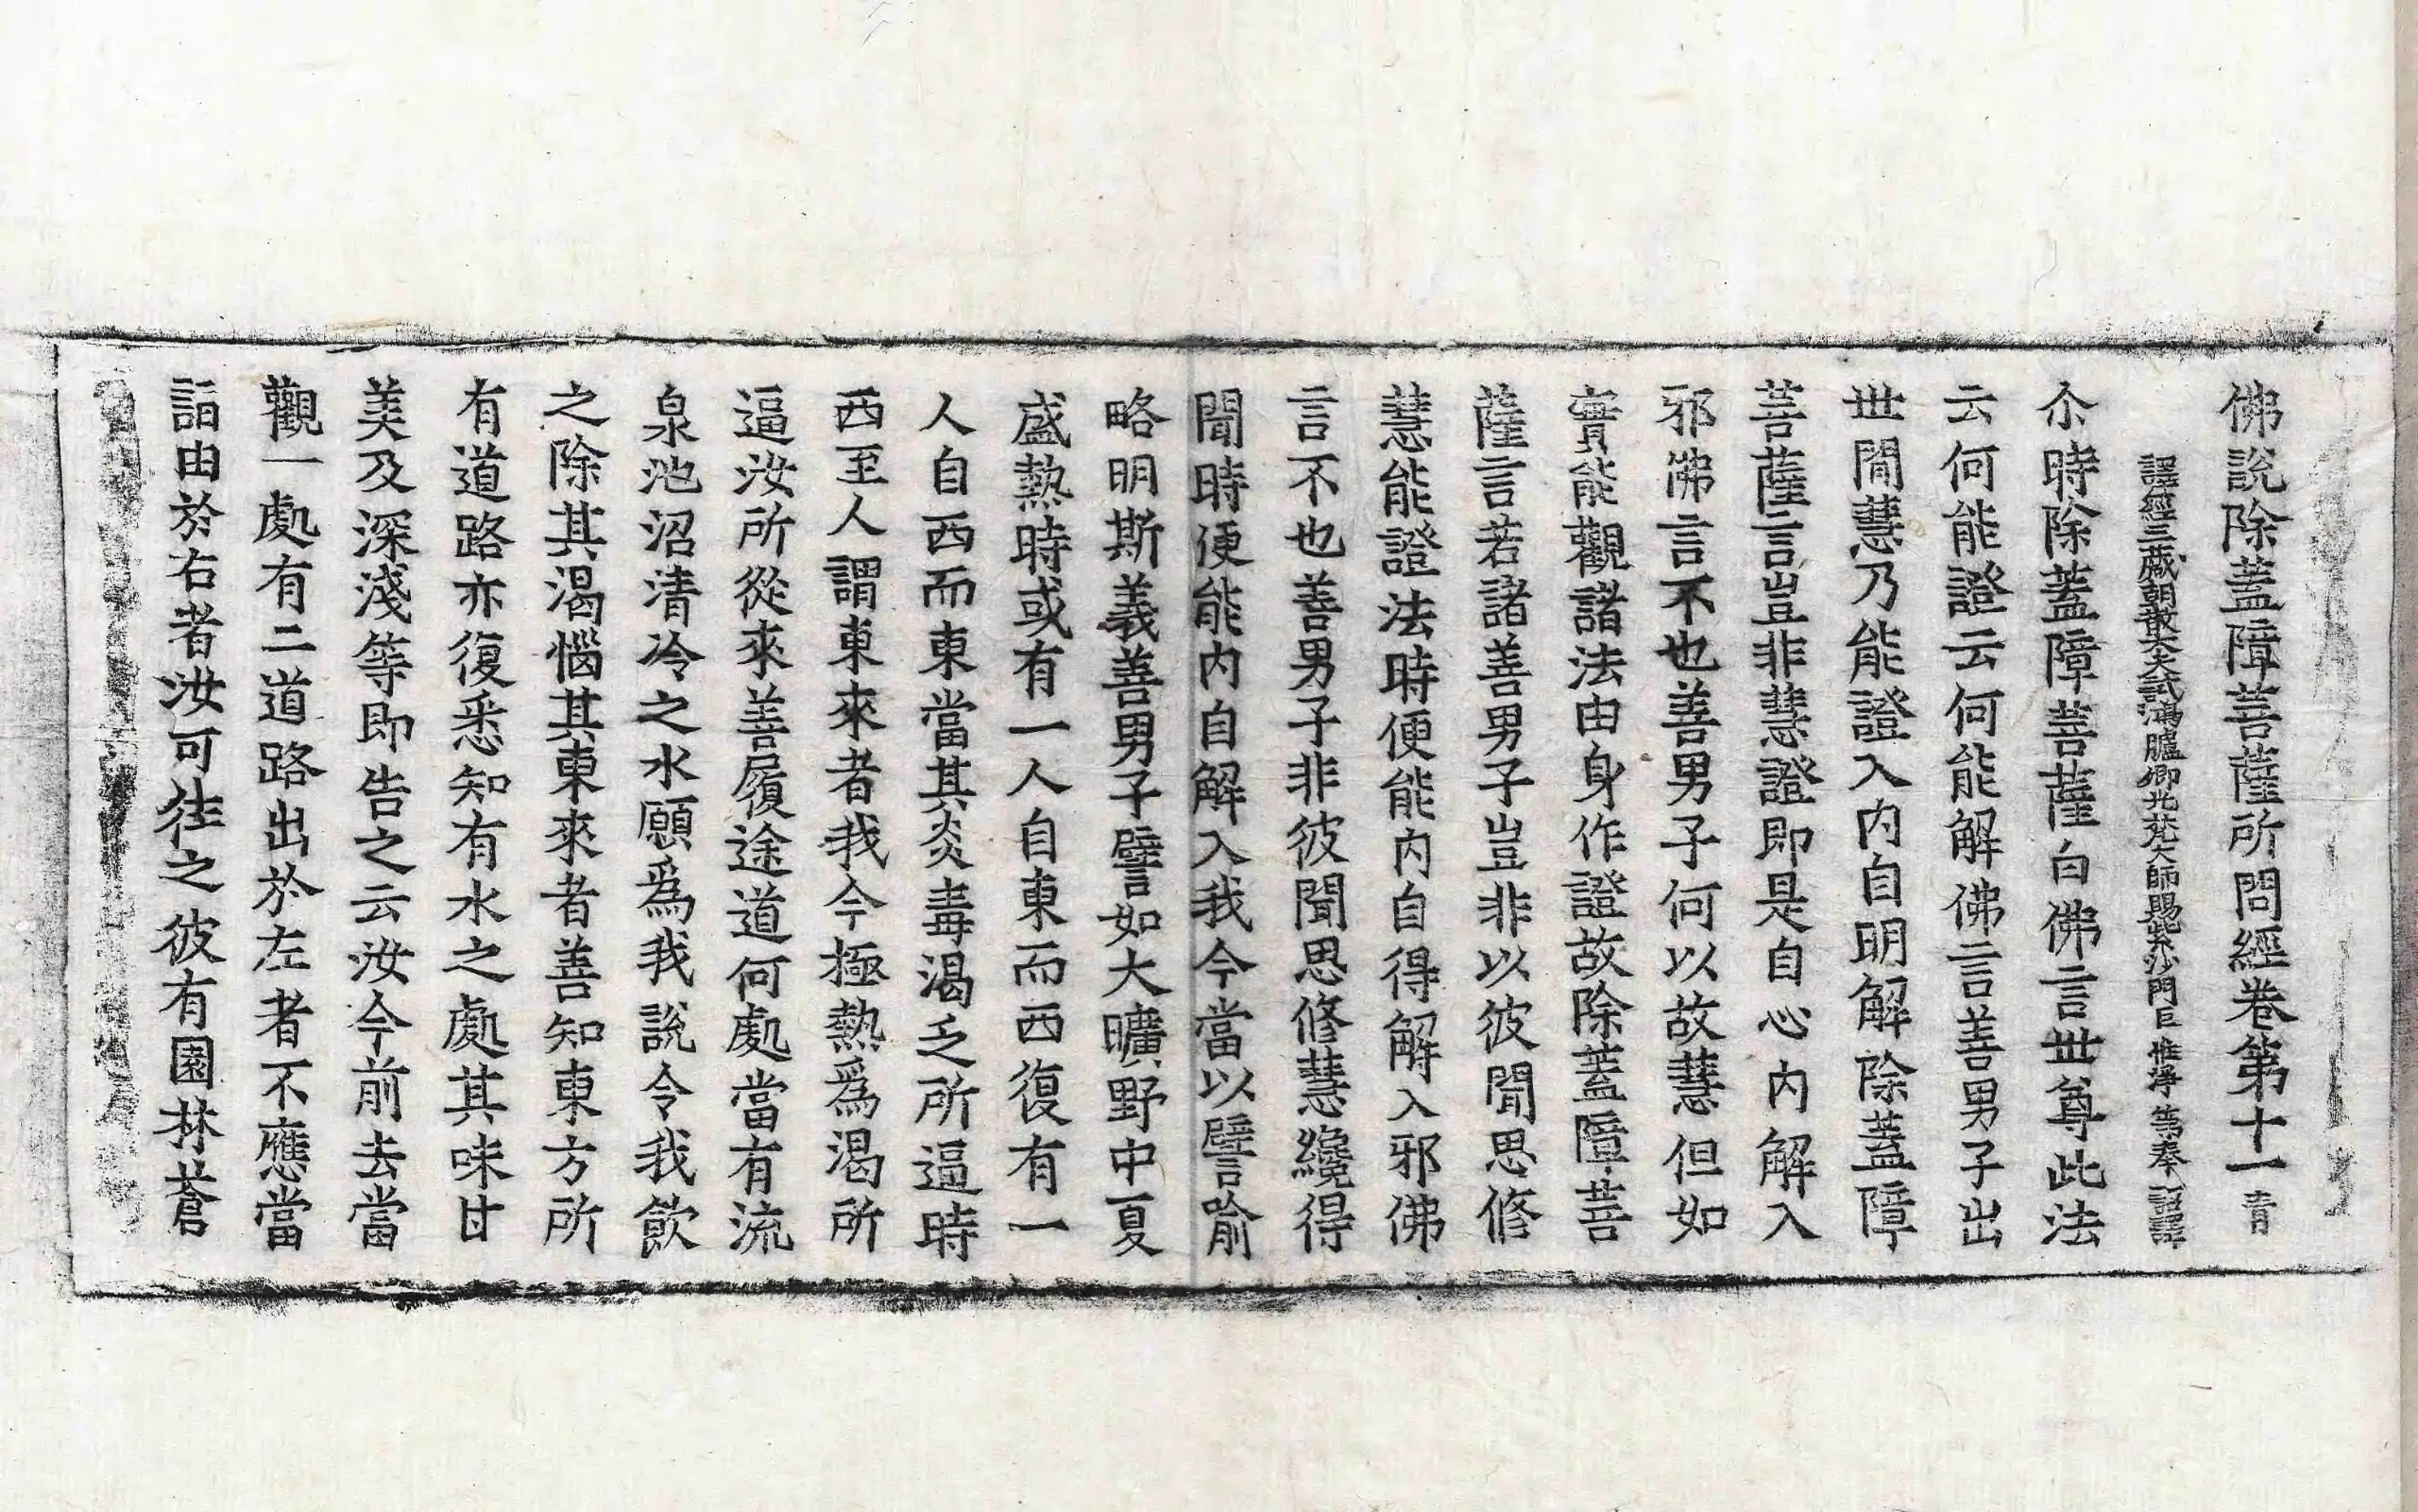 佛說除蓋障菩薩所問經卷第十一 青
譯經三藏朝散大夫試鴻臚卿光梵大師賜紫沙門臣惟淨等奉 詔譯
尒時除蓋障菩薩白佛言世尊此法
云何能證云何能解佛言善男子出
世閒慧乃能證入內自明解除蓋障
菩薩言豈非慧證即是自心內解入
邪佛言不也善男子何以故慧但如
實能觀諸法由身作證故除蓋障菩
薩言若諸善男子豈非以彼聞思修
慧能證法時便能內自得解入邪佛
言不也善男子非彼聞思修慧纔得
聞時便能內自解入我今當以譬喻
略明斯義善男子譬如大曠野中夏
盛熱時或有一人自東而西復有一
人自西而東當其炎毒渴乏所逼時
西至人謂東來者我今極熱爲渴所
逼汝所從來善履途道何處當有流
泉池沼清冷之水願爲我說令我飲
之除其渴惱其東來者善知東方所
有道路亦復悉知有水之處其味甘
美及深淺等即告之云汝今前去當
觀一處有二道路出於左者不應當
詣由於右者汝可往之彼有園林蒼